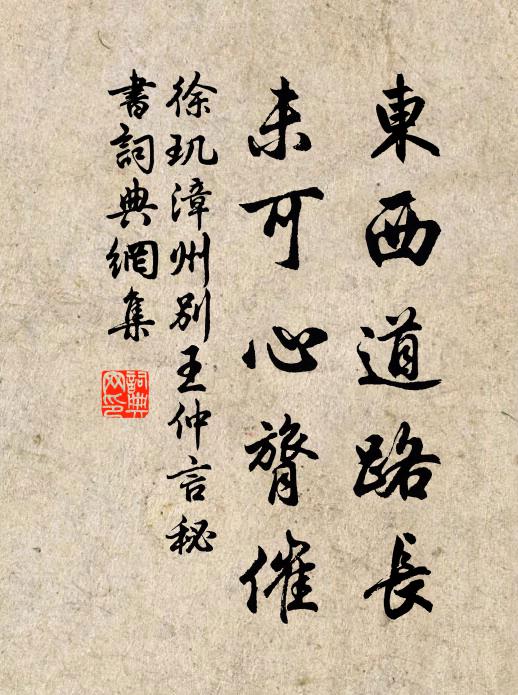 東西道路長
未可心膂催
徐玑漳州別王仲言秘
書詞典網集
詞典
网印